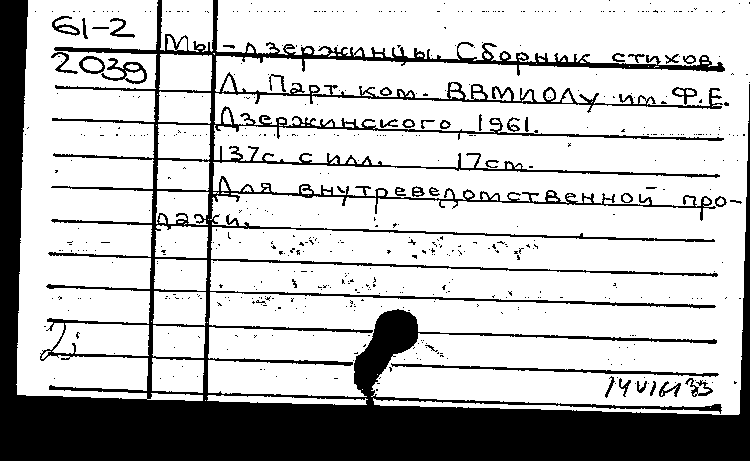 61-2
2039
Мы-дзержинцы. Сборник стихов.
Л., Парт. ком. ВВМИОЛУ им. Ф.Е.
Дзержинского, 1961.
137с. с илл. 17см.
Для внутреведомственной про-
дажи.